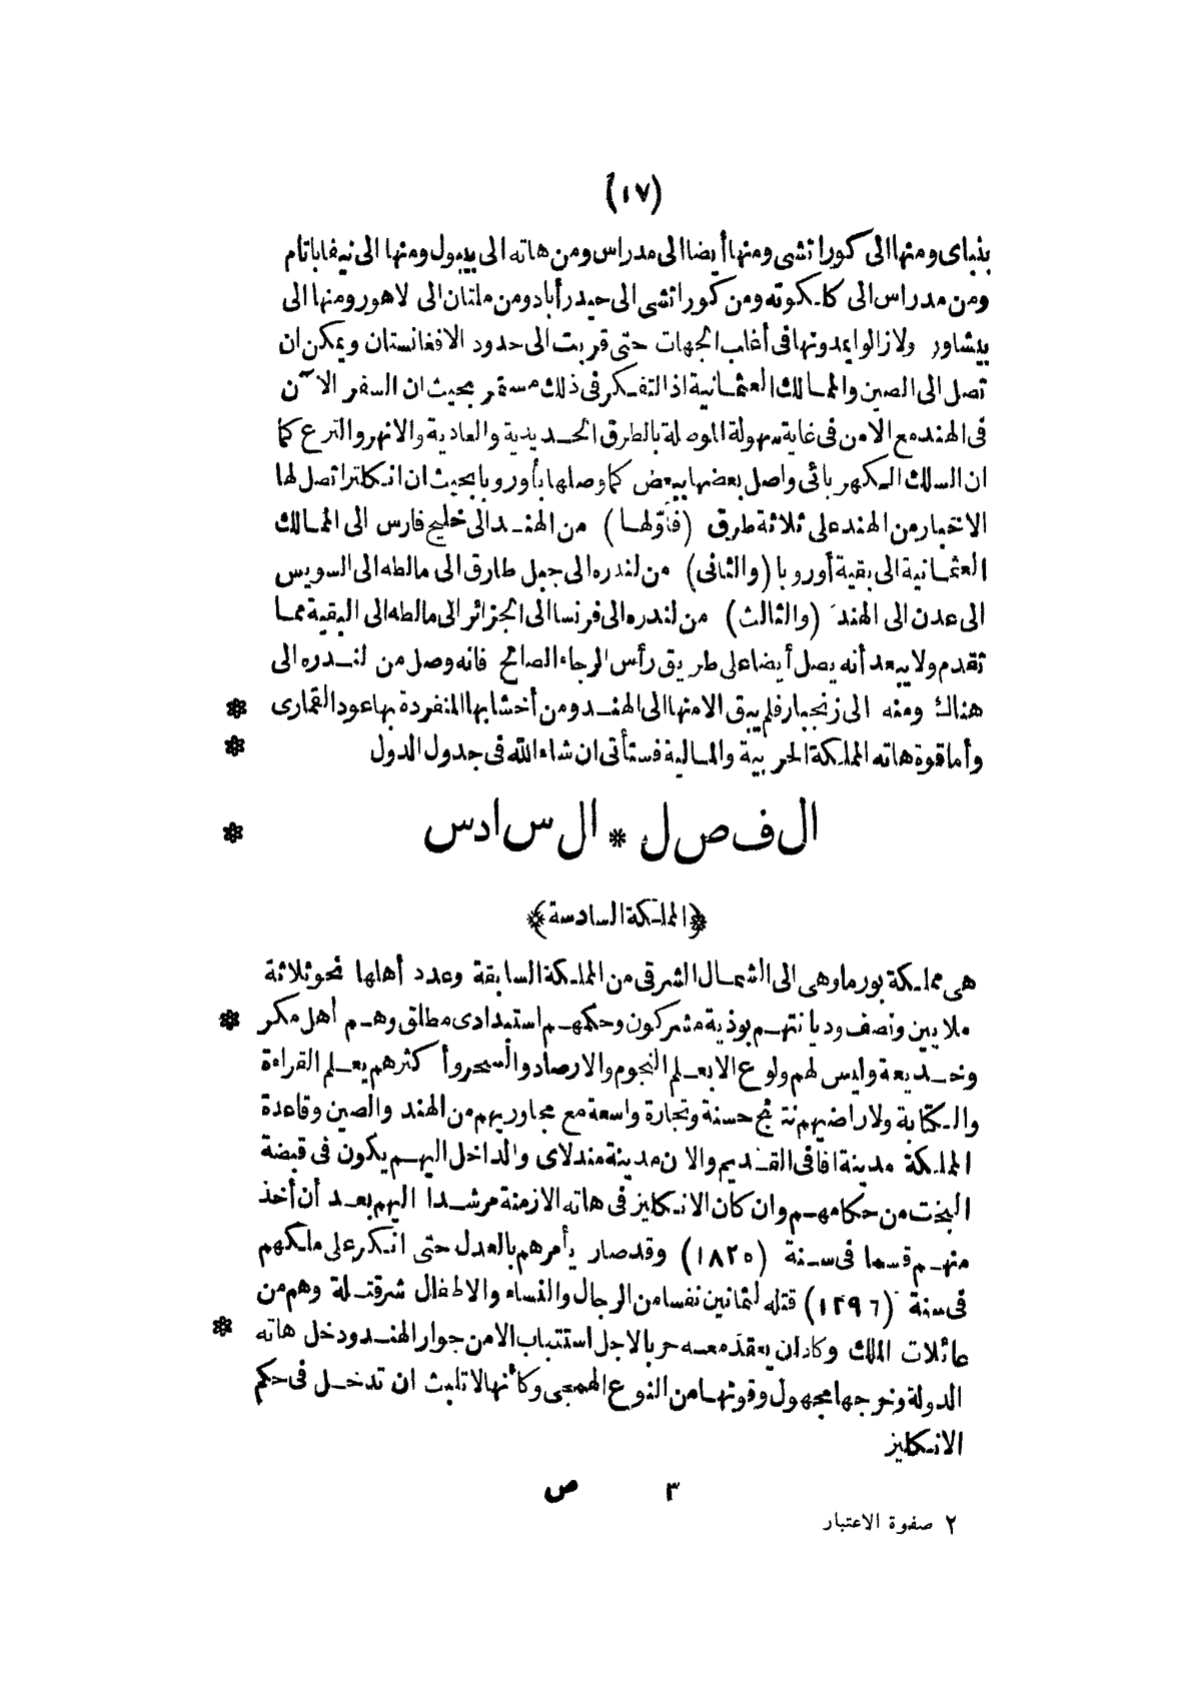 (١٧)
بنباى ومنها الى كوراتشى ومنها أيضا الى مدراس ومن هاته الى بيبول ومنها الى نيفاباتام
ومن مدراس الى كلكوته ومن كوراتشى الى حيدر أباد ومن ملتان الى لاهور ومنها الى
بيشاور ولا زالوا يمدونها فى أغلب الجهات حتى قربت الى حدود الافغانستان ويمكن ان
تصل الى الصين والممالك العثمانية اذ التفكر فى ذلك مستمر بحيث ان السفر الآن
فى الهند مع الامن فى غاية سهولة الموصلة بالطرق الحديدية والعادية والانهر والترع كما
ان السلك الكهربائى واصل بعضها ببعض كما وصلها بأوروبا بحيث ان انكلترا تصل لها
الاخبار من الهند على ثلاثة طرق (فأوّلها) من الهند الى خليج فارس الى الممالك
العثمانية الى بقية أوروبا (والثانى) من لندره الى جبل طارق الى مالطه الى السويس
الى عدن الى الهند (والثالث) من لندره الى فرنسا الى الجزائر الى مالطه الى البقية مما
تقدم ولا يبعد أنه يصل أيضا على طريق رأس الرجاء الصالح فانه وصل من لندره الى
هناك ومنه الى زنجبار فلم يبق الا منها الى الهند ومن أخشابها المنفردة بها عود القمارى *
وأما قوة هاته المملكة الحربية والمالية فستأتى ان شاء الله فى جدول الدول *
الفصل * السادس *
﴿المملكة السادسة﴾
هى مملكة بورما وهى الى الشمال الشرقى من المملكة السابقة وعدد أهلها نحو ثلاثة
ملايين ونصف وديانتهم بوذية مشركون وحكمهم استبدادى مطلق وهم أهل مكر *
وخديعة وليس لهم ولوع الا بعلم النجوم والارصاد والسحر وأكثرهم يعلم القراءة
والكتابة ولاراضيهم نتائج حسنة وتجارة واسعة مع مجاوريهم من الهند والصين وقاعدة
المملكة مدينة افا فى القديم والآن مدينة مندلاى والداخل اليهم يكون فى قبضة
البخت من حكامهم وان كان الانكليز فى هاته الازمنة مرشدا اليهم بعد أن أخذ
منهم قسما فى سنة (١٨٢٥) وقد صار يأمرهم بالعدل حتى انكر على ملكهم
فى سنة (١٢٩٦) قتله لثمانين نفسا من الرجال والنساء والاطفال شر قتلة وهم من
عائلات الملك وكاد ان يعقد معه حربا لاجل استتباب الامن جوار الهند ودخل هاته *
الدولة وخرجها مجهول وقوتها من النوع الهمجى وكأنها لا تلبث ان تدخل فى حكم
الانكليز
٣ ص
٢ صفوة الاعتبار